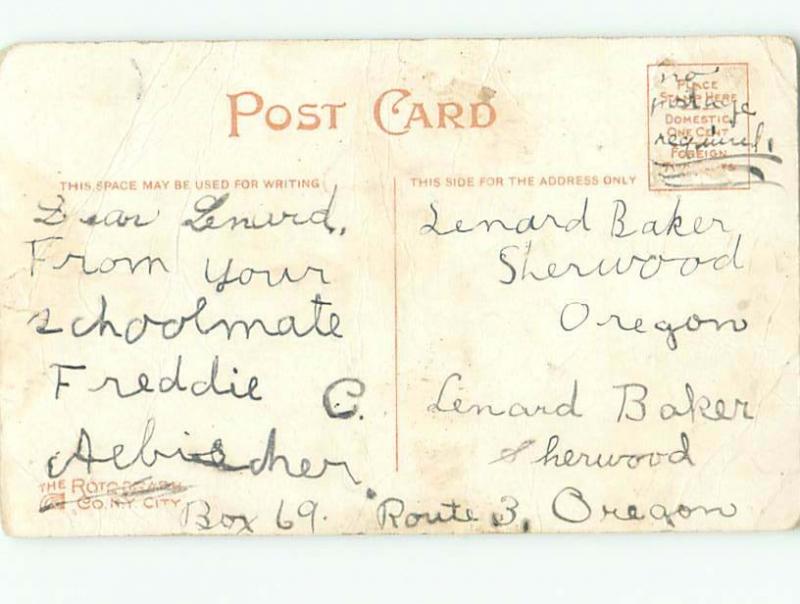 POST CARD
THIS SPACE MAY BE USED FOR WRITING
Dear Lenard,
From your
schoolmate
Freddie C.
Aebischer
THE ROTOGRAPH
CO. N.Y. CITY
Box 69. Route 3, Oregon
THIS SIDE FOR THE ADDRESS ONLY
PLACE
STAMP HERE
DOMESTIC
ONE CENT
FOREIGN
no
postage
required.
Lenard Baker
Sherwood
Oregon
Lenard Baker
Sherwood